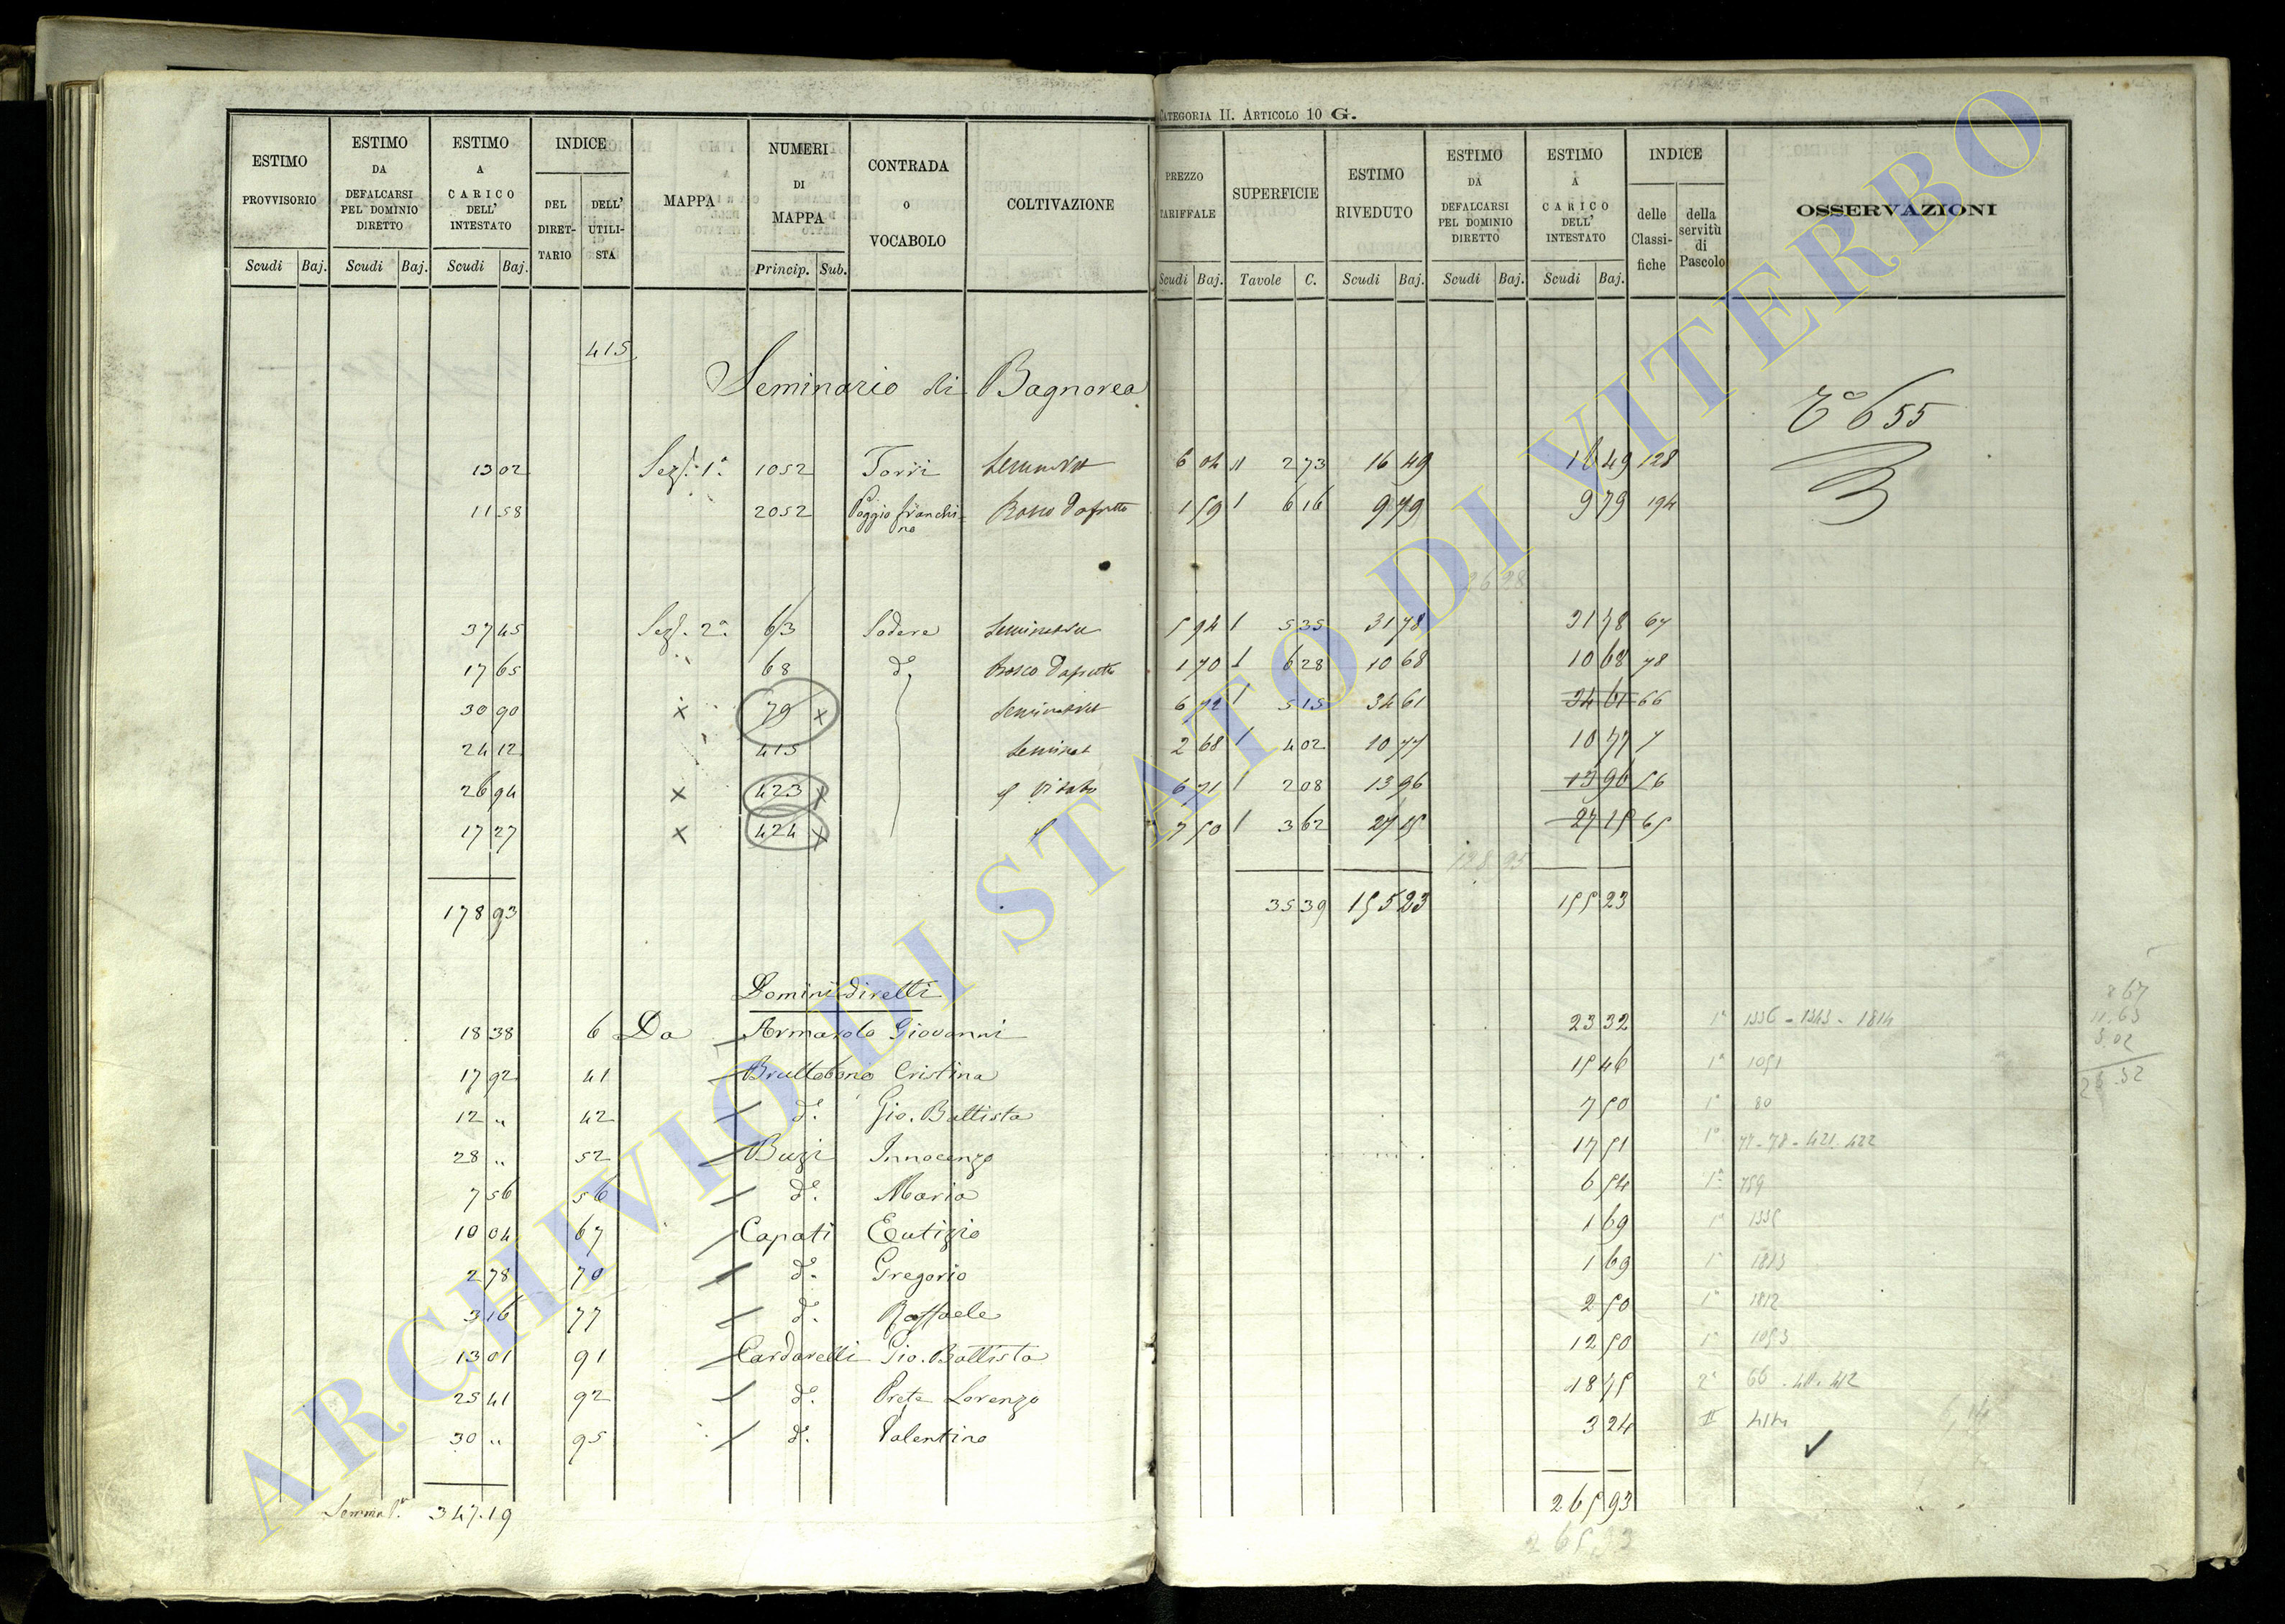 CATEGORIA II. ARTICOLO 10 G.
ESTIMO PROVVISORIO Scudi Baj.
ESTIMO DA DEFALCARSI PEL DOMINIO DIRETTO Scudi Baj.
ESTIMO A CARICO DELL' INTESTATO Scudi Baj.
INDICE DEL DIRETTARIO DELL' UTILISTA
MAPPA
NUMERI DI MAPPA Princip. Sub.
CONTRADA O VOCABOLO
COLTIVAZIONE
PREZZO TARIFFALE Scudi Baj.
SUPERFICIE Tavole C.
ESTIMO RIVEDUTO Scudi Baj.
ESTIMO DA DEFALCARSI PEL DOMINIO DIRETTO Scudi Baj.
ESTIMO A CARICO DELL' INTESTATO Scudi Baj.
INDICE delle Classifiche della servitù di Pascolo
OSSERVAZIONI
415
Seminario di Bagnorea
655
13 02 Sez. 1a 1052 Torri 6 04 2 73 16 49 16 49 128
11 58 2052 Poggio franchino Bosco 1 59 1 6 16 9 79 9 79 194
26 28
37 45 Sez. 2a 63 Sodere Seminativo 5 94 1 5 35 31 78 31 78 67
17 65 68 do Bosco 1 70 1 6 28 10 68 10 68 78
30 90 x 79 x Seminativo 6 72 1 5 15 34 61 34 61 66
24 12 415 Seminat 2 68 1 4 02 10 77 10 77 7
26 94 x 423 x Vitato 6 71 1 2 08 13 96 13 96 56
17 27 x 424 x 7 50 1 3 62 27 15 27 15 65
128 95
178 93 35 39 155 23 155 23
Domini diretti
18 38 6 Da Armarolo Giovanni 23 32 1a 1336 - 1343 - 1814
17 92 41 Bruttobono Cristina 15 46 1a 1051
12 " 42 do. Gio. Battista 7 50 1a 80
28 " 52 Buzi Innocenzo 17 51 1a 77 - 78 - 421. 422
7 56 56 do. Maria 6 54 1a 759
10 04 67 Capati Eutizio 1 69 1a 1335
2 78 70 do. Gregorio 1 69 1a 1813
3 16 77 do. Raffaele 2 50 1a 1812
13 01 91 Cardarelli Gio. Battista 12 50 1a 1053
25 41 92 do. Prete Lorenzo 18 75 2a 66 . 411. 412
30 " 95 do. Valentino 3 24 II 414
8 67
11.63
3 02
23.32
Somma 347.19
265 93
265 93
ARCHIVIO DI STATO DI VITERBO